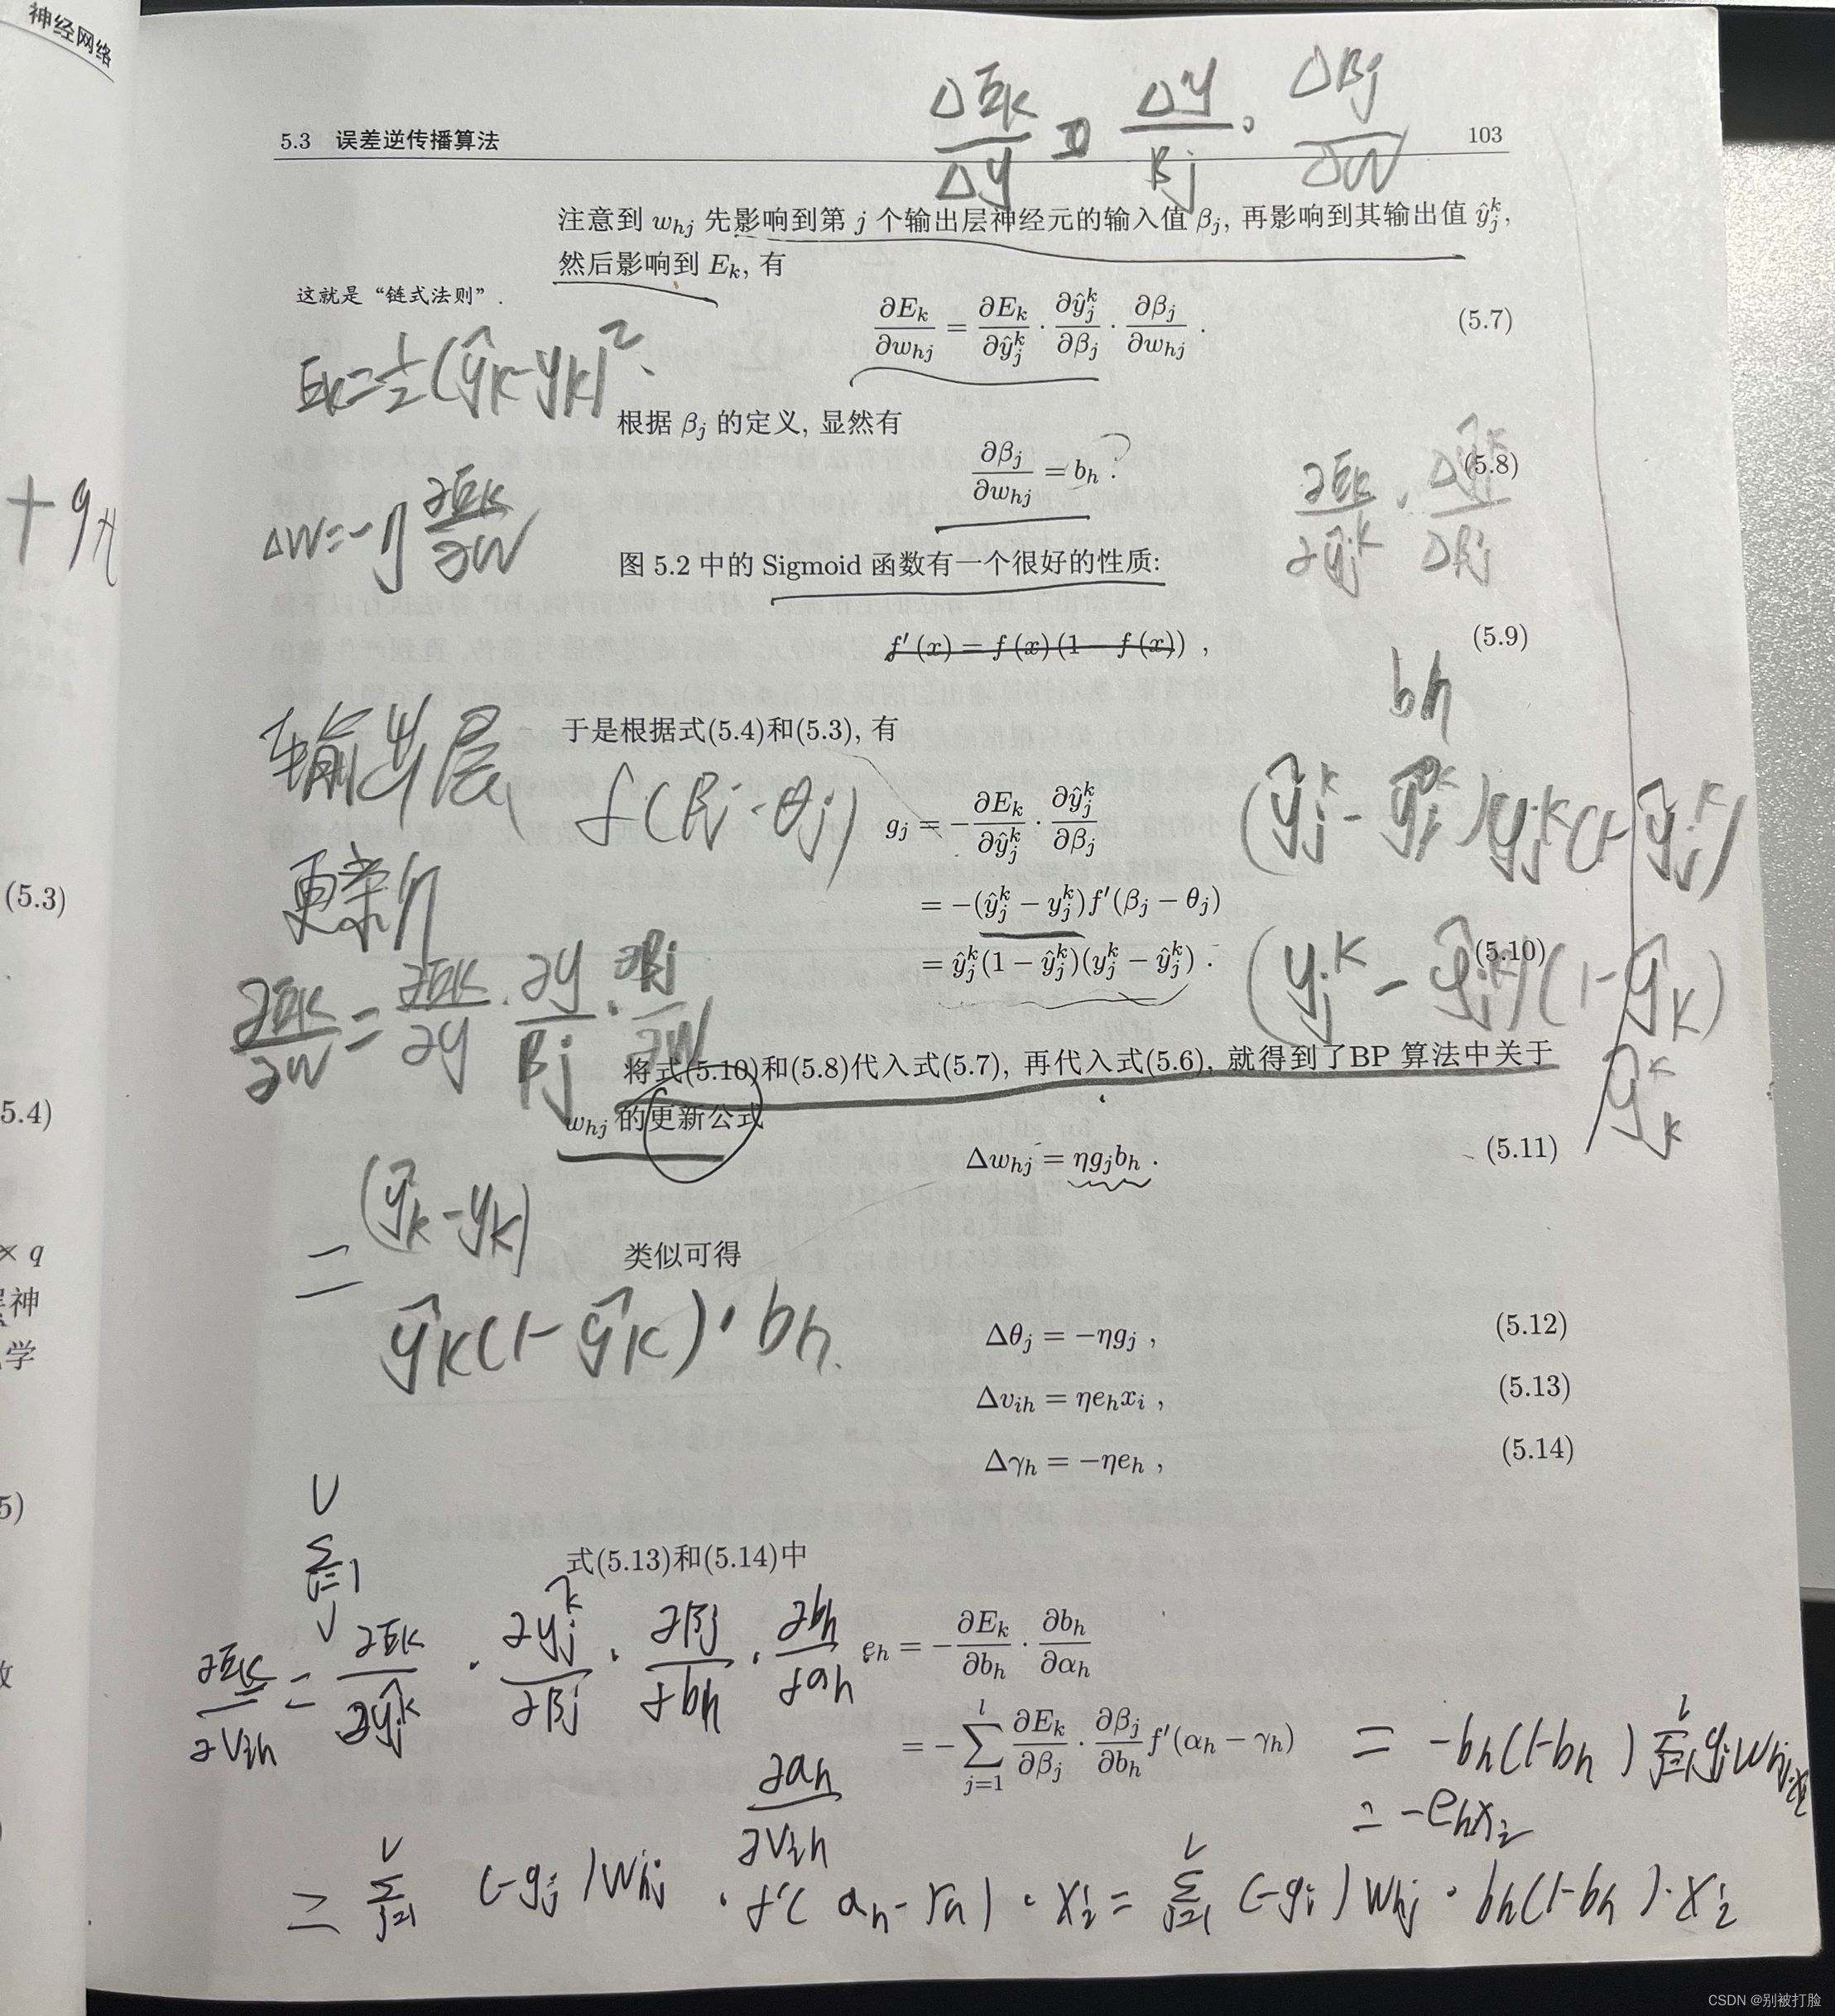 神经网络
5.3 误差逆传播算法
103
注意到 w_{hj} 先影响到第 j 个输出层神经元的输入值 β_j, 再影响到其输出值 ŷ_j^k,
然后影响到 E_k, 有
这就是“链式法则”.
∂E_k/∂w_{hj} = ∂E_k/∂ŷ_j^k · ∂ŷ_j^k/∂β_j · ∂β_j/∂w_{hj} . (5.7)
E_k = 1/2 (ŷ_k - y_k)^2
根据 β_j 的定义, 显然有
∂β_j/∂w_{hj} = b_h . (5.8)
ΔW = -η ∂E_k/∂W
∂E_k/∂ŷ_j^k · ∂ŷ_j^k/∂β_j
图 5.2 中的 Sigmoid 函数有一个很好的性质:
f′(x) = f(x)(1 − f(x)) , (5.9)
bh
输出层
于是根据式(5.4)和(5.3), 有
f(β_j - θ_j)
g_j = −∂E_k/∂ŷ_j^k · ∂ŷ_j^k/∂β_j
更新
(5.3)
= −(ŷ_j^k − y_j^k)f′(β_j − θ_j)
= ŷ_j^k(1 − ŷ_j^k)(y_j^k − ŷ_j^k) . (5.10)
(y_j^k - ŷ_j^k)(1-ŷ_k)
ŷ_k^k
∂E_k/∂W = ∂E_k/∂y · ∂y/β_j · ∂β_j/∂W
将式(5.10)和(5.8)代入式(5.7), 再代入式(5.6), 就得到了BP 算法中关于
5.4)
w_{hj} 的更新公式
Δw_{hj} = ηg_j b_h . (5.11)
= (ŷ_k - y_k)
ŷ_k(1-ŷ_k)·b_h.
× q
类似可得
Δθ_j = −ηg_j , (5.12)
Δv_{ih} = ηe_h x_i , (5.13)
Δγ_h = −ηe_h , (5.14)
5)
式(5.13)和(5.14)中
∂E_k/∂V_{ih} = ∂E_k/∂ŷ_j^k · ∂ŷ_j^k/∂β_j · ∂β_j/∂b_h · ∂b_h/∂a_h
∂a_h/∂V_{ih}
e_h = −∂E_k/∂b_h · ∂b_h/∂α_h
= −∑_{j=1}^{l} ∂E_k/∂β_j · ∂β_j/∂b_h f′(α_h − γ_h)
= -b_h(1-b_h) ∑_{j=1}^{l} g_j w_{hj} x_i
= -e_h x_i
= ∑_{j=1}^{l} (-g_j) W_{hj} · f′(α_h - γ_h) · x_i = ∑_{j=1}^{l} (-g_j) W_{hj} · b_h(1-b_h) · x_i
CSDN @别被打脸